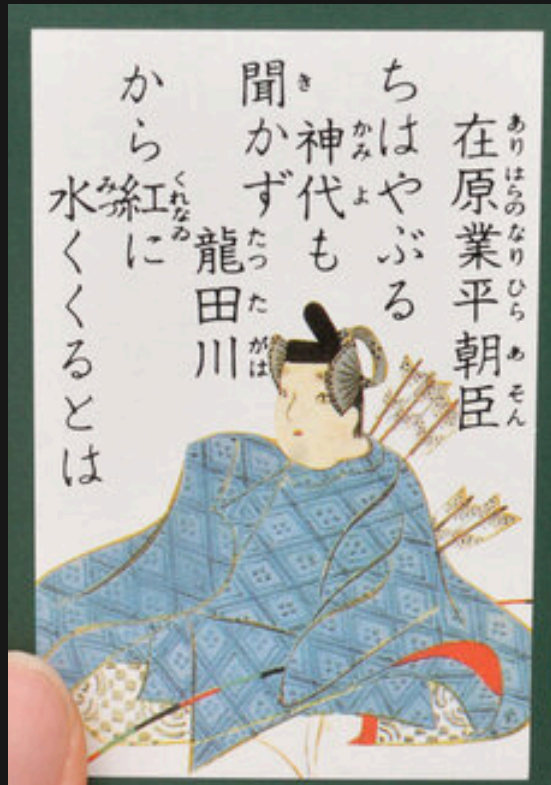 在原業平朝臣
ありはらのなりひらあそん
ちはやぶる
神代も
かみよ
聞かず
き
龍田川
たつたがは
から紅に
くれなゐ
水くくるとは
みづ